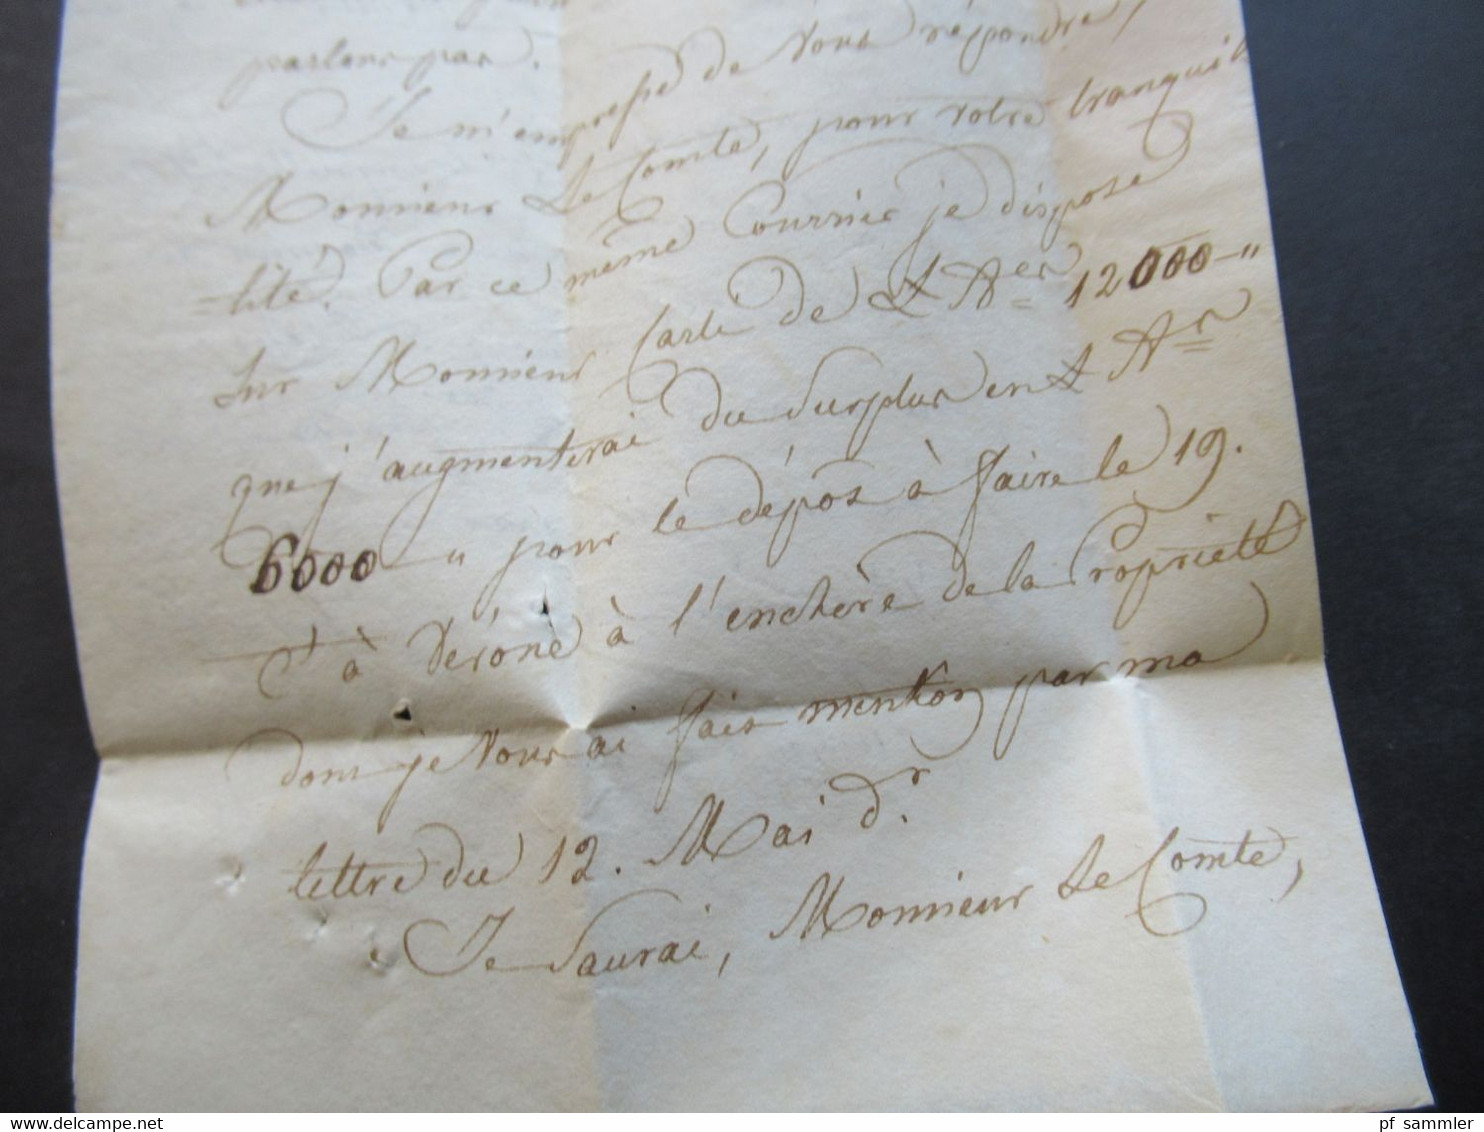 parlons pas.
Je m'empresse de Vous répondre,
Monsieur Le Comte, pour votre tranquil
=lité. Par ce même Courrier je dispose
sur Monsieur Carli de £ Aes 12000 —"
que j'augmenterai du surplus en £ As
6000 —" pour le dépôs à faire le 19.
ct à Vérone à l'enchère de la Propriété
dont je Vous ai fait mention par ma
lettre du 12. Mai dr.
Je Saurai, Monsieur Le Comte,
pf_sammler